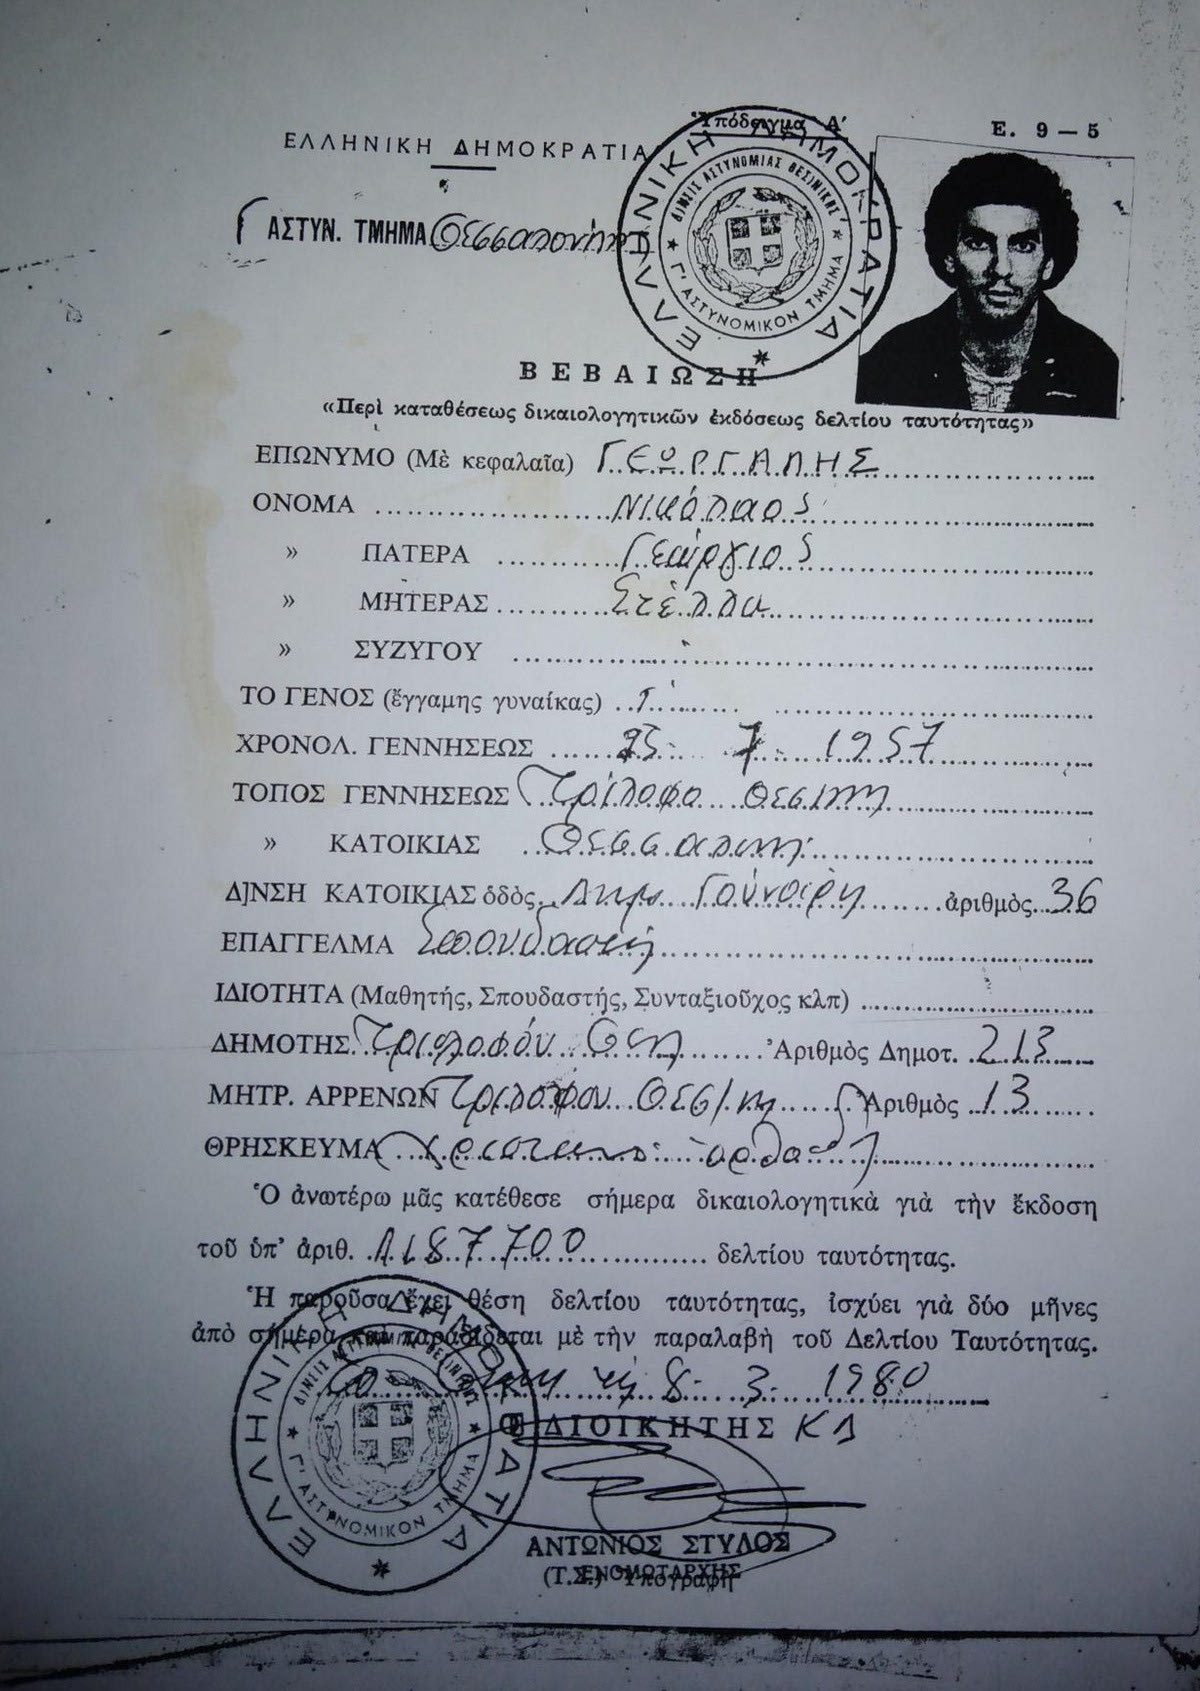 Ὑπόδειγμα Α′
Ε. 9 — 5
ΕΛΛΗΝΙΚΗ ΔΗΜΟΚΡΑΤΙΑ
Γ ΑΣΤΥΝ. ΤΜΗΜΑ Θεσσαλονίκης
ΕΛΛΗΝΙΚΗ ΔΗΜΟΚΡΑΤΙΑ
Δ)ΝΣΙΣ ΑΣΤΥΝΟΜΙΑΣ ΘΕΣ)ΝΙΚΗΣ
Γ′ ΑΣΤΥΝΟΜΙΚΟΝ ΤΜΗΜΑ
ΒΕΒΑΙΩΣΗ
«Περὶ καταθέσεως δικαιολογητικῶν ἐκδόσεως δελτίου ταυτότητας»
ΕΠΩΝΥΜΟ (Μὲ κεφαλαῖα) ΓΕΩΡΓΑΛΗΣ
ΟΝΟΜΑ Νικόλαος
» ΠΑΤΕΡΑ Γεώργιος
» ΜΗΤΕΡΑΣ Στέλλα
» ΣΥΖΥΓΟΥ
ΤΟ ΓΕΝΟΣ (ἔγγαμης γυναίκας)
ΧΡΟΝΟΛ. ΓΕΝΝΗΣΕΩΣ 25- 7- 1957
ΤΟΠΟΣ ΓΕΝΝΗΣΕΩΣ Τρίλοφο Θεσ/νίκη
» ΚΑΤΟΙΚΙΑΣ
Δ)ΝΣΗ ΚΑΤΟΙΚΙΑΣ ὁδὸς Δημ. Γούναρη ἀριθμὸς 36
ΕΠΑΓΓΕΛΜΑ Σπουδαστή
ΙΔΙΟΤΗΤΑ (Μαθητής, Σπουδαστής, Συνταξιοῦχος κλπ)
ΔΗΜΟΤΗΣ Ἀριθμὸ Δημοτ. 213
ΜΗΤΡ. ΑΡΡΕΝΩΝ Ἀριθμὸς 13
ΘΡΗΣΚΕΥΜΑ
Ὁ ἀνωτέρω μᾶς κατέθεσε σήμερα δικαιολογητικὰ γιὰ τὴν ἔκδοση
τοῦ ὑπ' ἀριθ. Λ187700 δελτίου ταυτότητας.
Ἡ παροῦσα ἔχει θέση δελτίου ταυτότητας, ἰσχύει γιὰ δύο μῆνες
ἀπὸ σήμερα καὶ παραδίδεται μὲ τὴν παραλαβὴ τοῦ Δελτίου Ταυτότητας.
τῇ 8- 3- 1980
Ο ΔΙΟΙΚΗΤΗΣ ΚΔ
ΕΛΛΗΝΙΚΗ ΔΗΜΟΚΡΑΤΙΑ
Γ′ ΑΣΤΥΝΟΜΙΚΟΝ ΤΜΗΜΑ
ΑΝΤΩΝΙΟΣ ΣΤΥΛΟΣ
ΕΝΩΜΟΤΑΡΧΗΣ
(Τ.Σ.) Ὑπογραφὴ